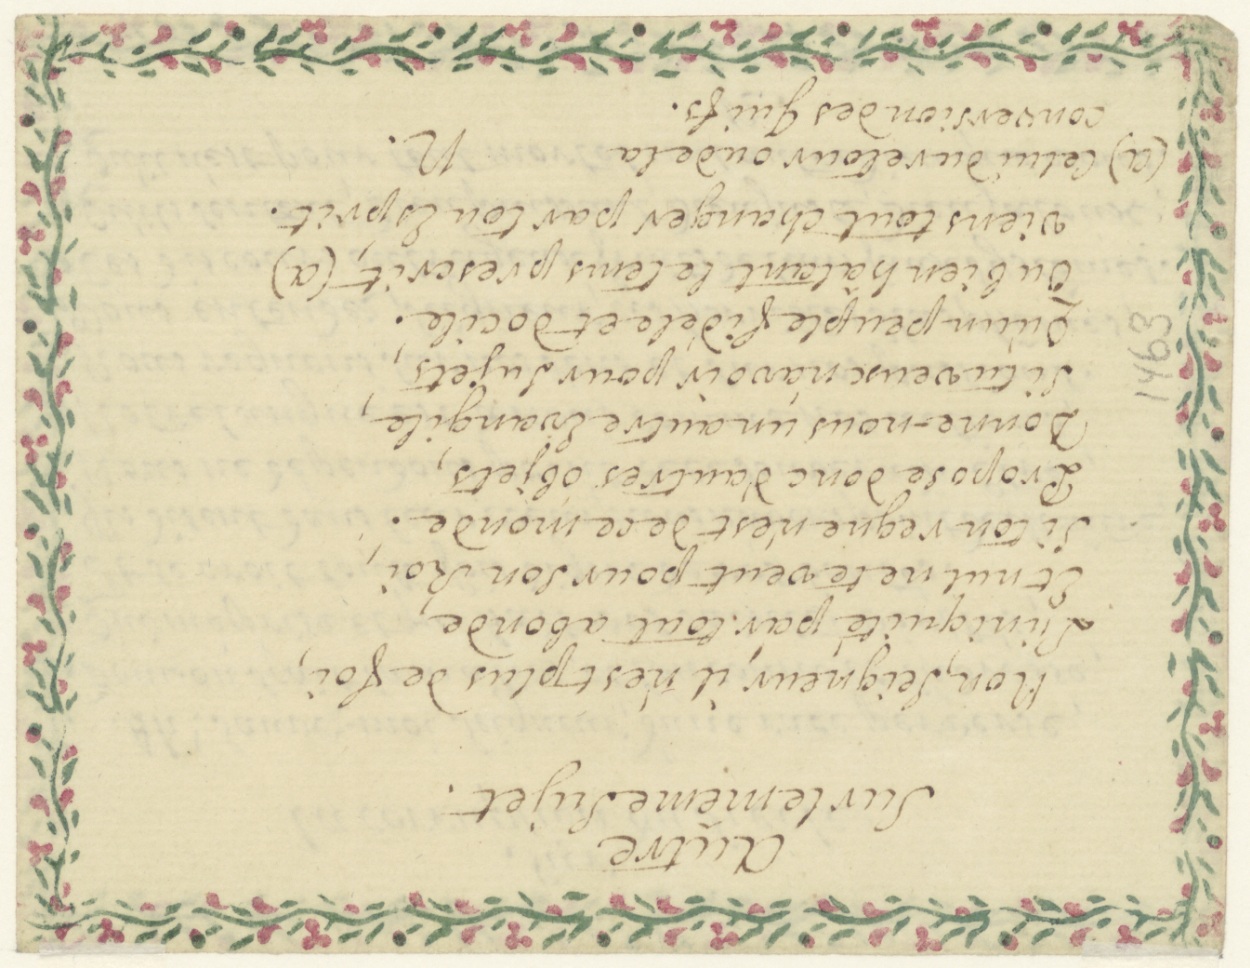 Autre
Sur le même Sujet.
Non, Seigneur, il n'est plus de foi,
L'iniquité par tout abonde
Et nul ne te veut pour Son Roi,
Si ton regne n'est de ce monde.
Propose donc d'autres objets,
Donne-nous un autre Evangile
Si tu veux n'avoir pour Sujets,
Qu'un peuple fidele et docile.
Ou bien hâtant le tems prescrit, (a)
viens tout changer par ton Esprit.
(a) Celui du retour ou de la
conversion des Juifs.
N.
1463